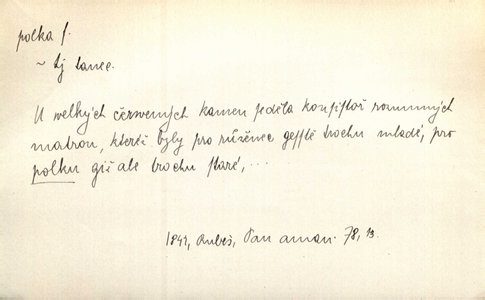 polka f.
~ tj tanec.
U welkých čerwených kamen seděla konsistoř rozumných
matron, kteréž byly pro růženec gesstě trochu mladé, pro
polku giž ale trochu staré, ...
1842, Rubeš, Pan aman. 78, 13.